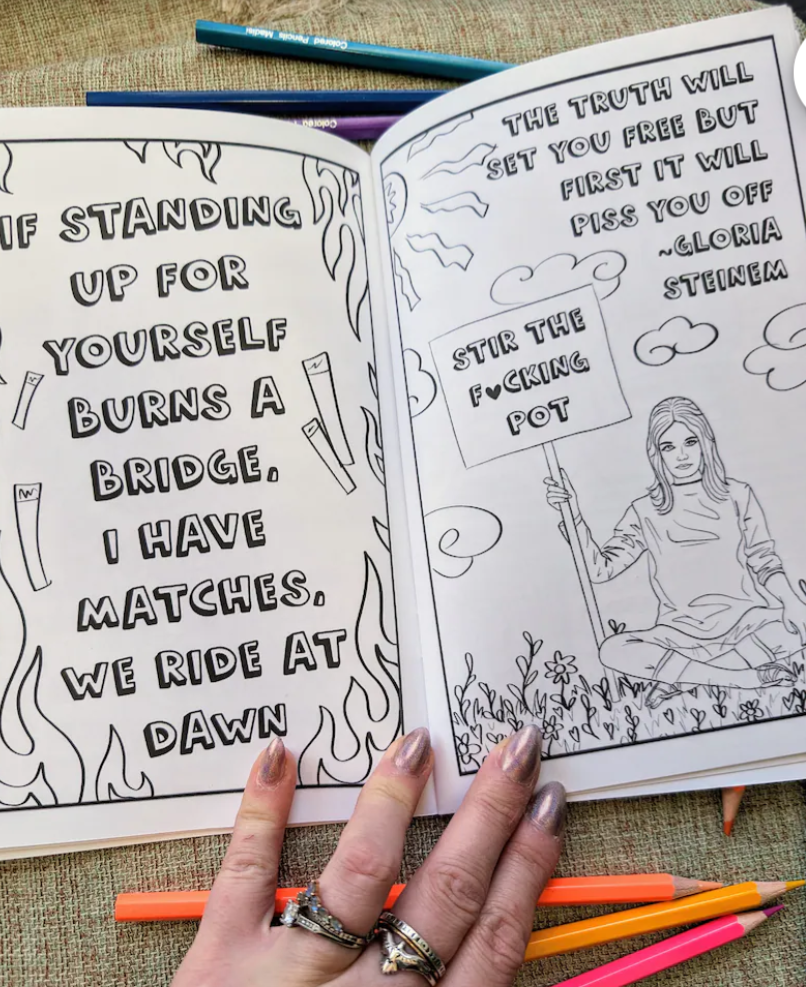 Colored Pencils Master
Colored
IF STANDING
UP FOR
YOURSELF
BURNS A
BRIDGE,
I HAVE
MATCHES,
WE RIDE AT
DAWN
THE TRUTH WILL
SET YOU FREE BUT
FIRST IT WILL
PISS YOU OFF
~GLORIA
STEINEM
STIR THE
F♥CKING
POT